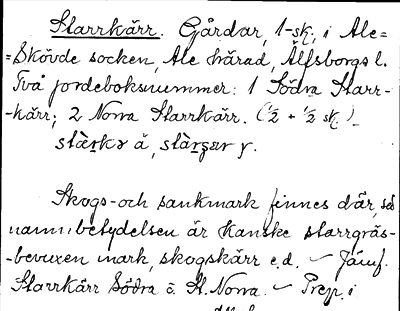 Starrkärr. Gårdar, 1 sk, i Ale=
=Skövde socken, Ale härad, Älfsborgs l.
Två jordeboksnummer: 1 Södra Starr-
-kärr; 2 Norra Starrkärr. (1/2 + 1/2 sk.)
Skogs- och sankmark finnes där, så
namnbetydelsen är kanske starrgräs-
-bevuxen mark, skogskärr e.d. – Jämf.
Starrkärr Södra o. St. Norra. – Prep. i